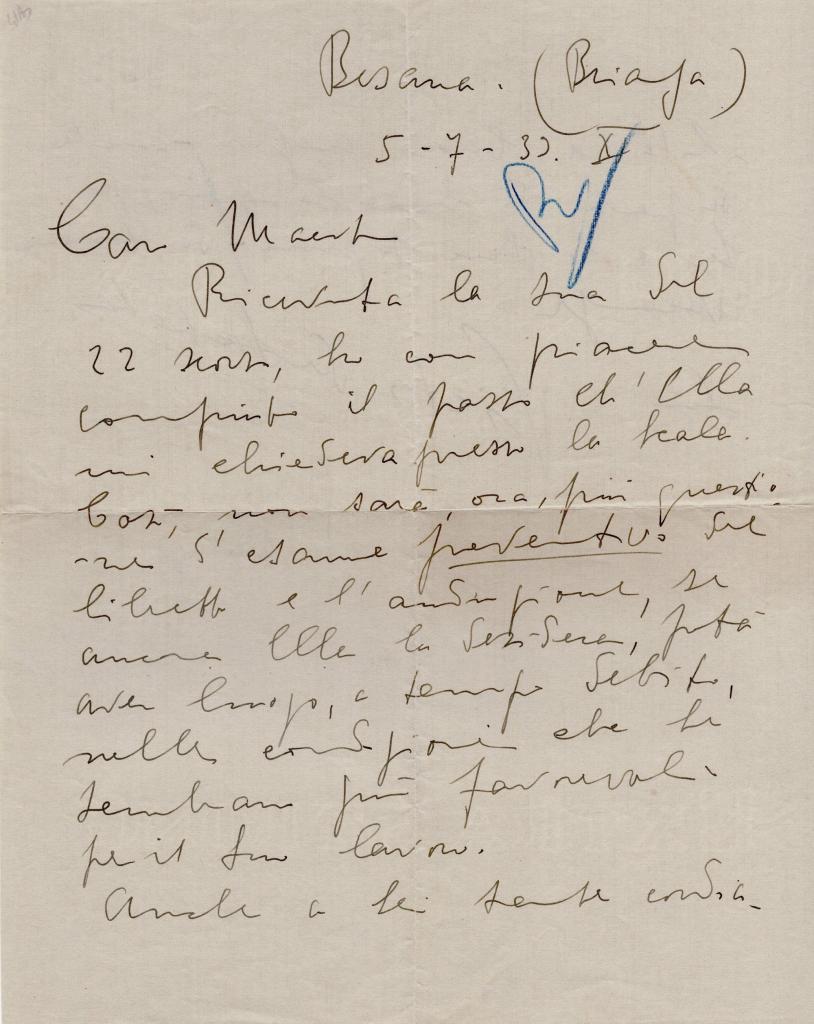 Besana. (Brianza)
5-7-33. XI
Caro Maestro
Ricevuta la sua del
22 scorso, ho con piacere
compiuto il passo ch'Ella
mi chiedeva presso la Scala.
Così, non sarà, ora, più questio-
-ne d'esame preventivo del
libretto e l'audizione, se
ancora Ella la desidera, potrà
aver luogo, a tempo debito,
nelle condizioni che Le
sembrano più favorevoli
per il suo lavoro.
Anche a Lei tante cordia-